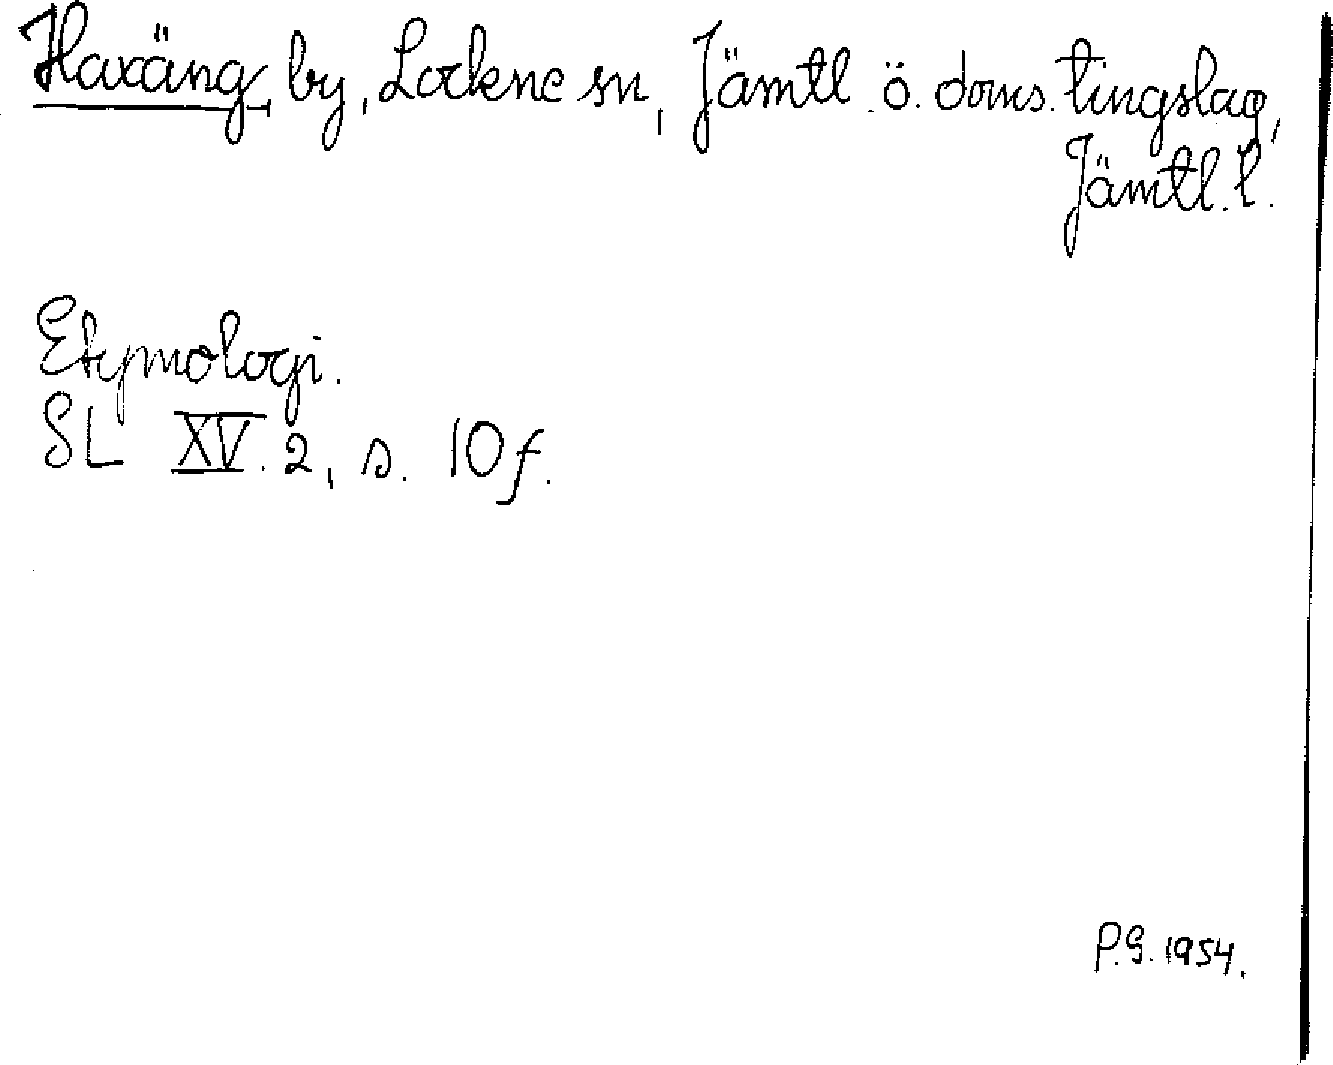 Haxäng, by, Lockne sn, Jämtl. ö. doms. tingslag,
Jämtl. l.
Etymologi.
SL XV. 2, s. 10 f.
P.G. 1954.